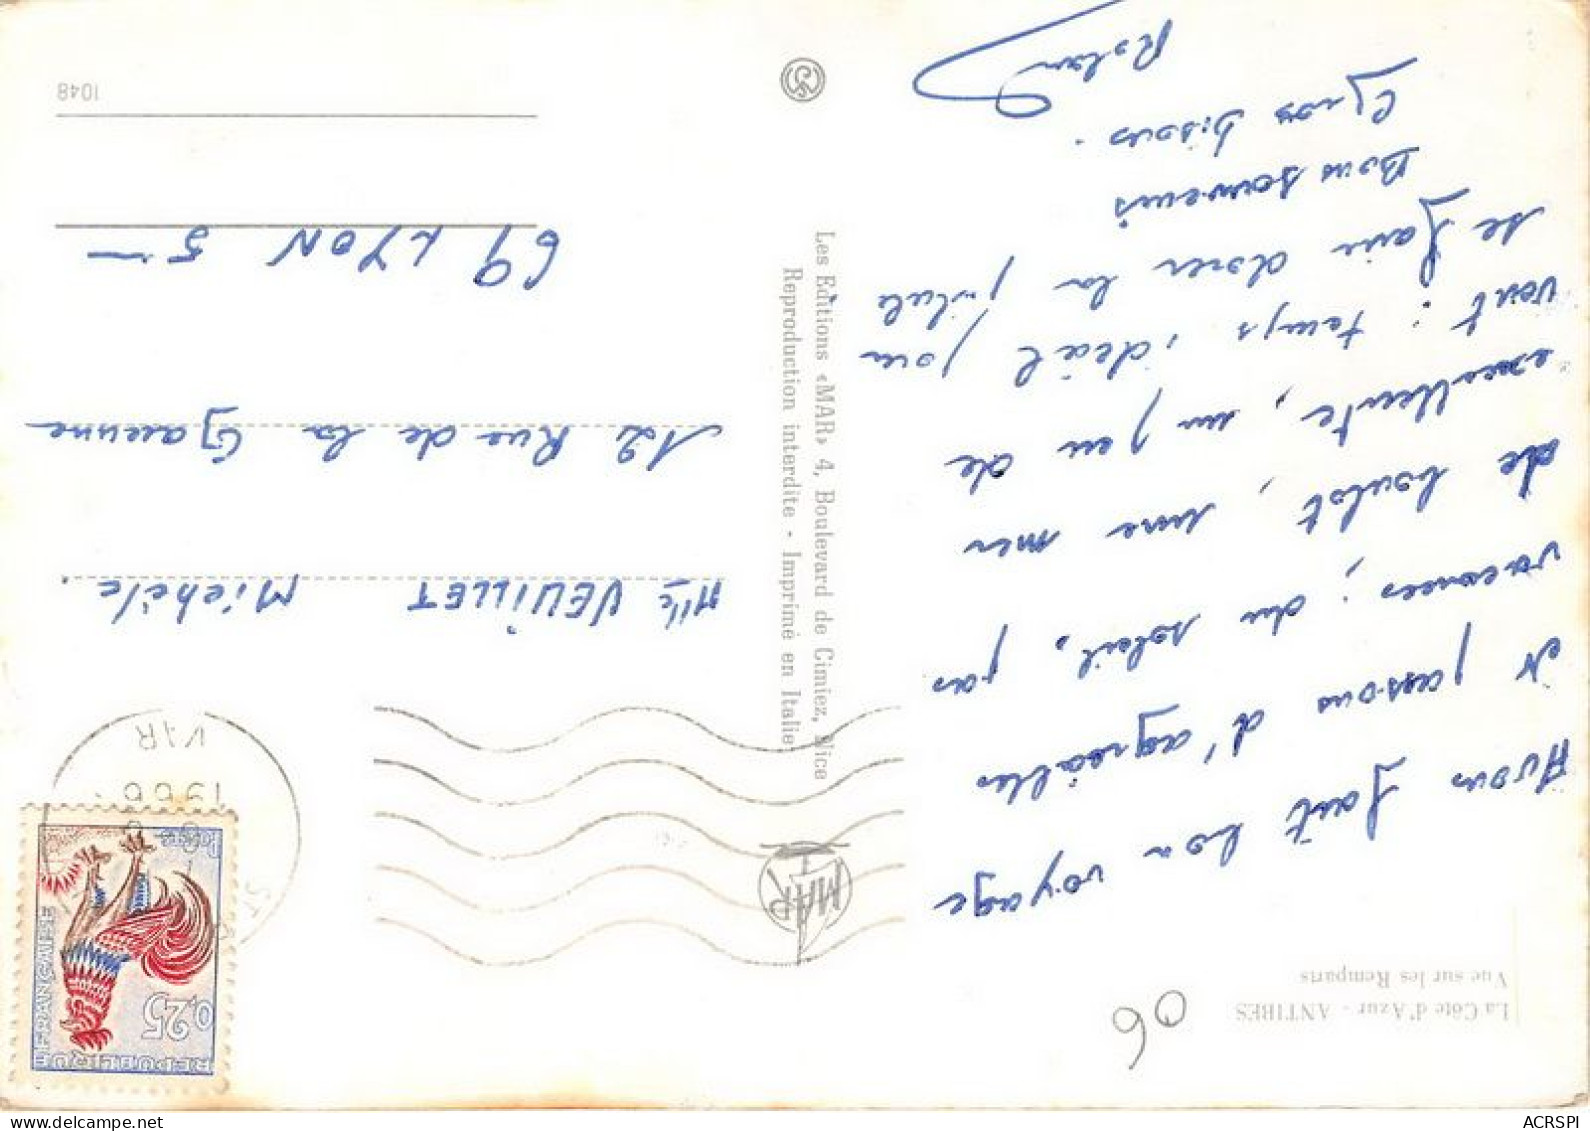 La Côte d'Azur - ANTIBES
Vue sur les Remparts
06
Avons fait bon voyage
et passons d'agréables
vacances ; du soleil, pas
de boulot, une mer
excellente, un peu de
vent : temps idéal pour
se faire dorer la pilule
Bons souvenirs
Gros bisous.
Roland
MAR
Les Editions «MAR» 4, Boulevard de Cimiez, Nice
Reproduction interdite - Imprimé en Italie
REPUBLIQUE FRANÇAISE
0,25
Postes
1966
VAR
Mlle VEUILLET Michèle.
12 Rue de la Garenne
69 LYON 5
1048
ACRSPI